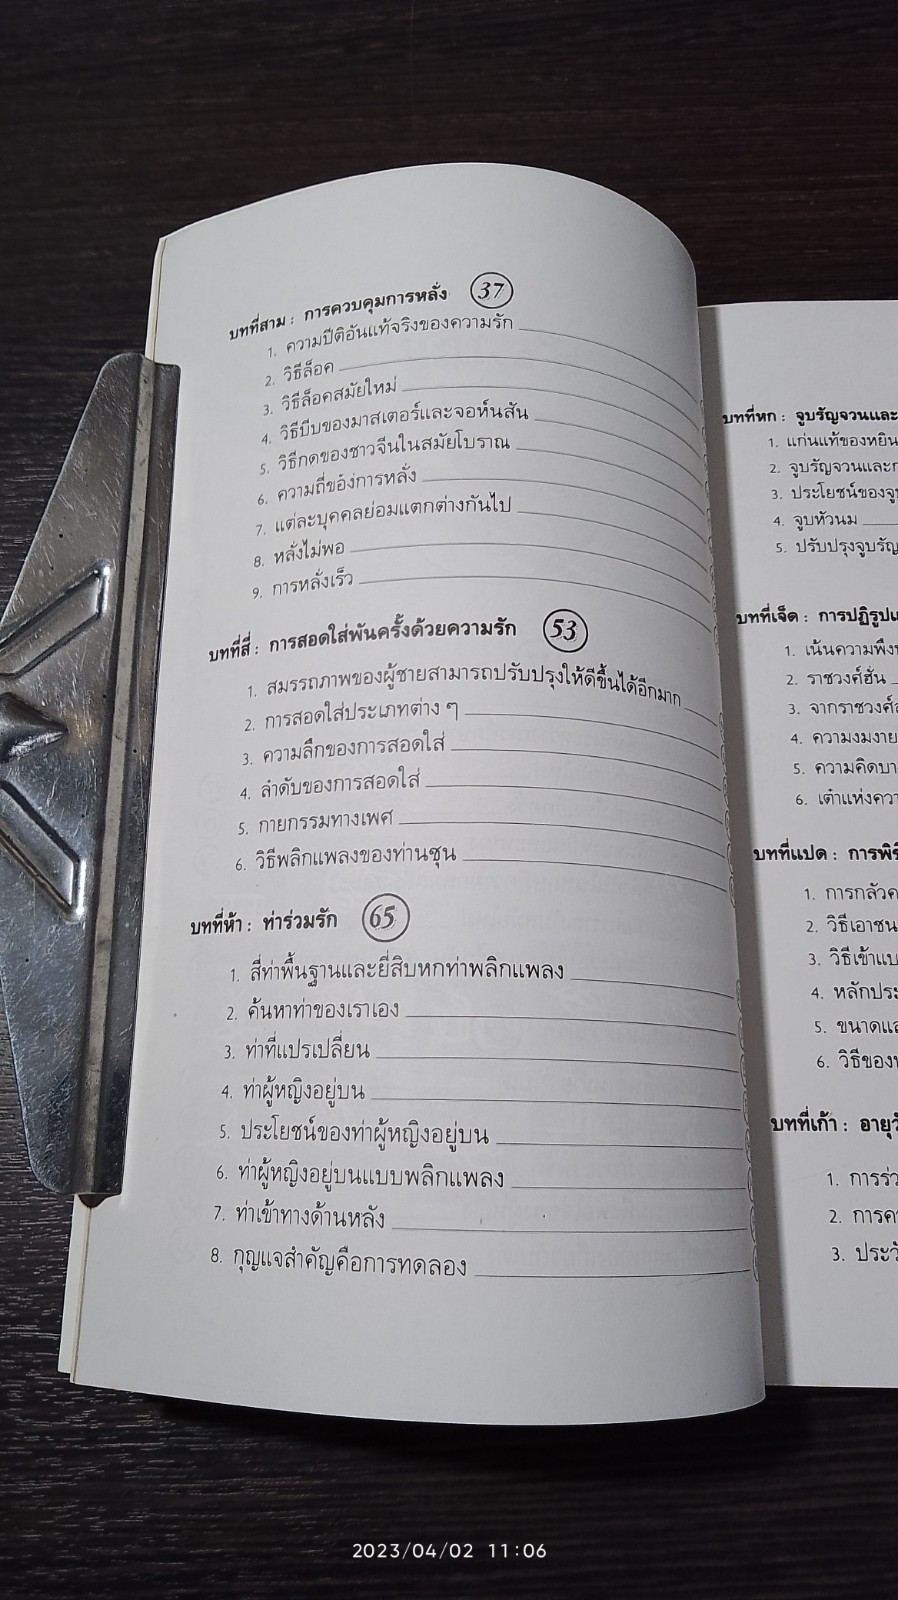 บทที่สาม : การควบคุมการหลั่ง 37
1. ความปีติอันแท้จริงของความรัก
2. วิธีล็อค
3. วิธีล็อคสมัยใหม่
4. วิธีบีบของมาสเตอร์และจอห์นสัน
5. วิธีกดของชาวจีนในสมัยโบราณ
6. ความถี่ของการหลั่ง
7. แต่ละบุคคลย่อมแตกต่างกันไป
8. หลั่งไม่พอ
9. การหลั่งเร็ว
บทที่สี่ : การสอดใส่พันครั้งด้วยความรัก 53
1. สมรรถภาพของผู้ชายสามารถปรับปรุงให้ดีขึ้นได้อีกมาก
2. การสอดใส่ประเภทต่าง ๆ
3. ความลึกของการสอดใส่
4. ลำดับของการสอดใส่
5. กายกรรมทางเพศ
6. วิธีพลิกแพลงของท่านซุน
บทที่ห้า : ท่าร่วมรัก 65
1. สี่ท่าพื้นฐานและยี่สิบหกท่าพลิกแพลง
2. ค้นหาท่าของเราเอง
3. ท่าที่แปรเปลี่ยน
4. ท่าผู้หญิงอยู่บน
5. ประโยชน์ของท่าผู้หญิงอยู่บน
6. ท่าผู้หญิงอยู่บนแบบพลิกแพลง
7. ท่าเข้าทางด้านหลัง
8. กุญแจสำคัญคือการทดลอง
บทที่หก : จูบรัญจวนและ
1. แก่นแท้ของหยิน
2. จูบรัญจวนและ
3. ประโยชน์ของจูบ
4. จูบหัวนม
5. ปรับปรุงจูบรัญ
บทที่เจ็ด : การปฏิรูป
1. เน้นความพึง
2. ราชวงศ์ฮั่น
3. จากราชวงศ์
4. ความงมงาย
5. ความคิด
6. เต๋าแห่ง
บทที่แปด : การ
1. การกลัว
2. วิธีเอาชน
3. วิธีเข้า
4. หลัก
5. ขนาด
6. วิธีของ
บทที่เก้า : อายุ
1. การ
2. การ
3.
2023/04/02 11:06